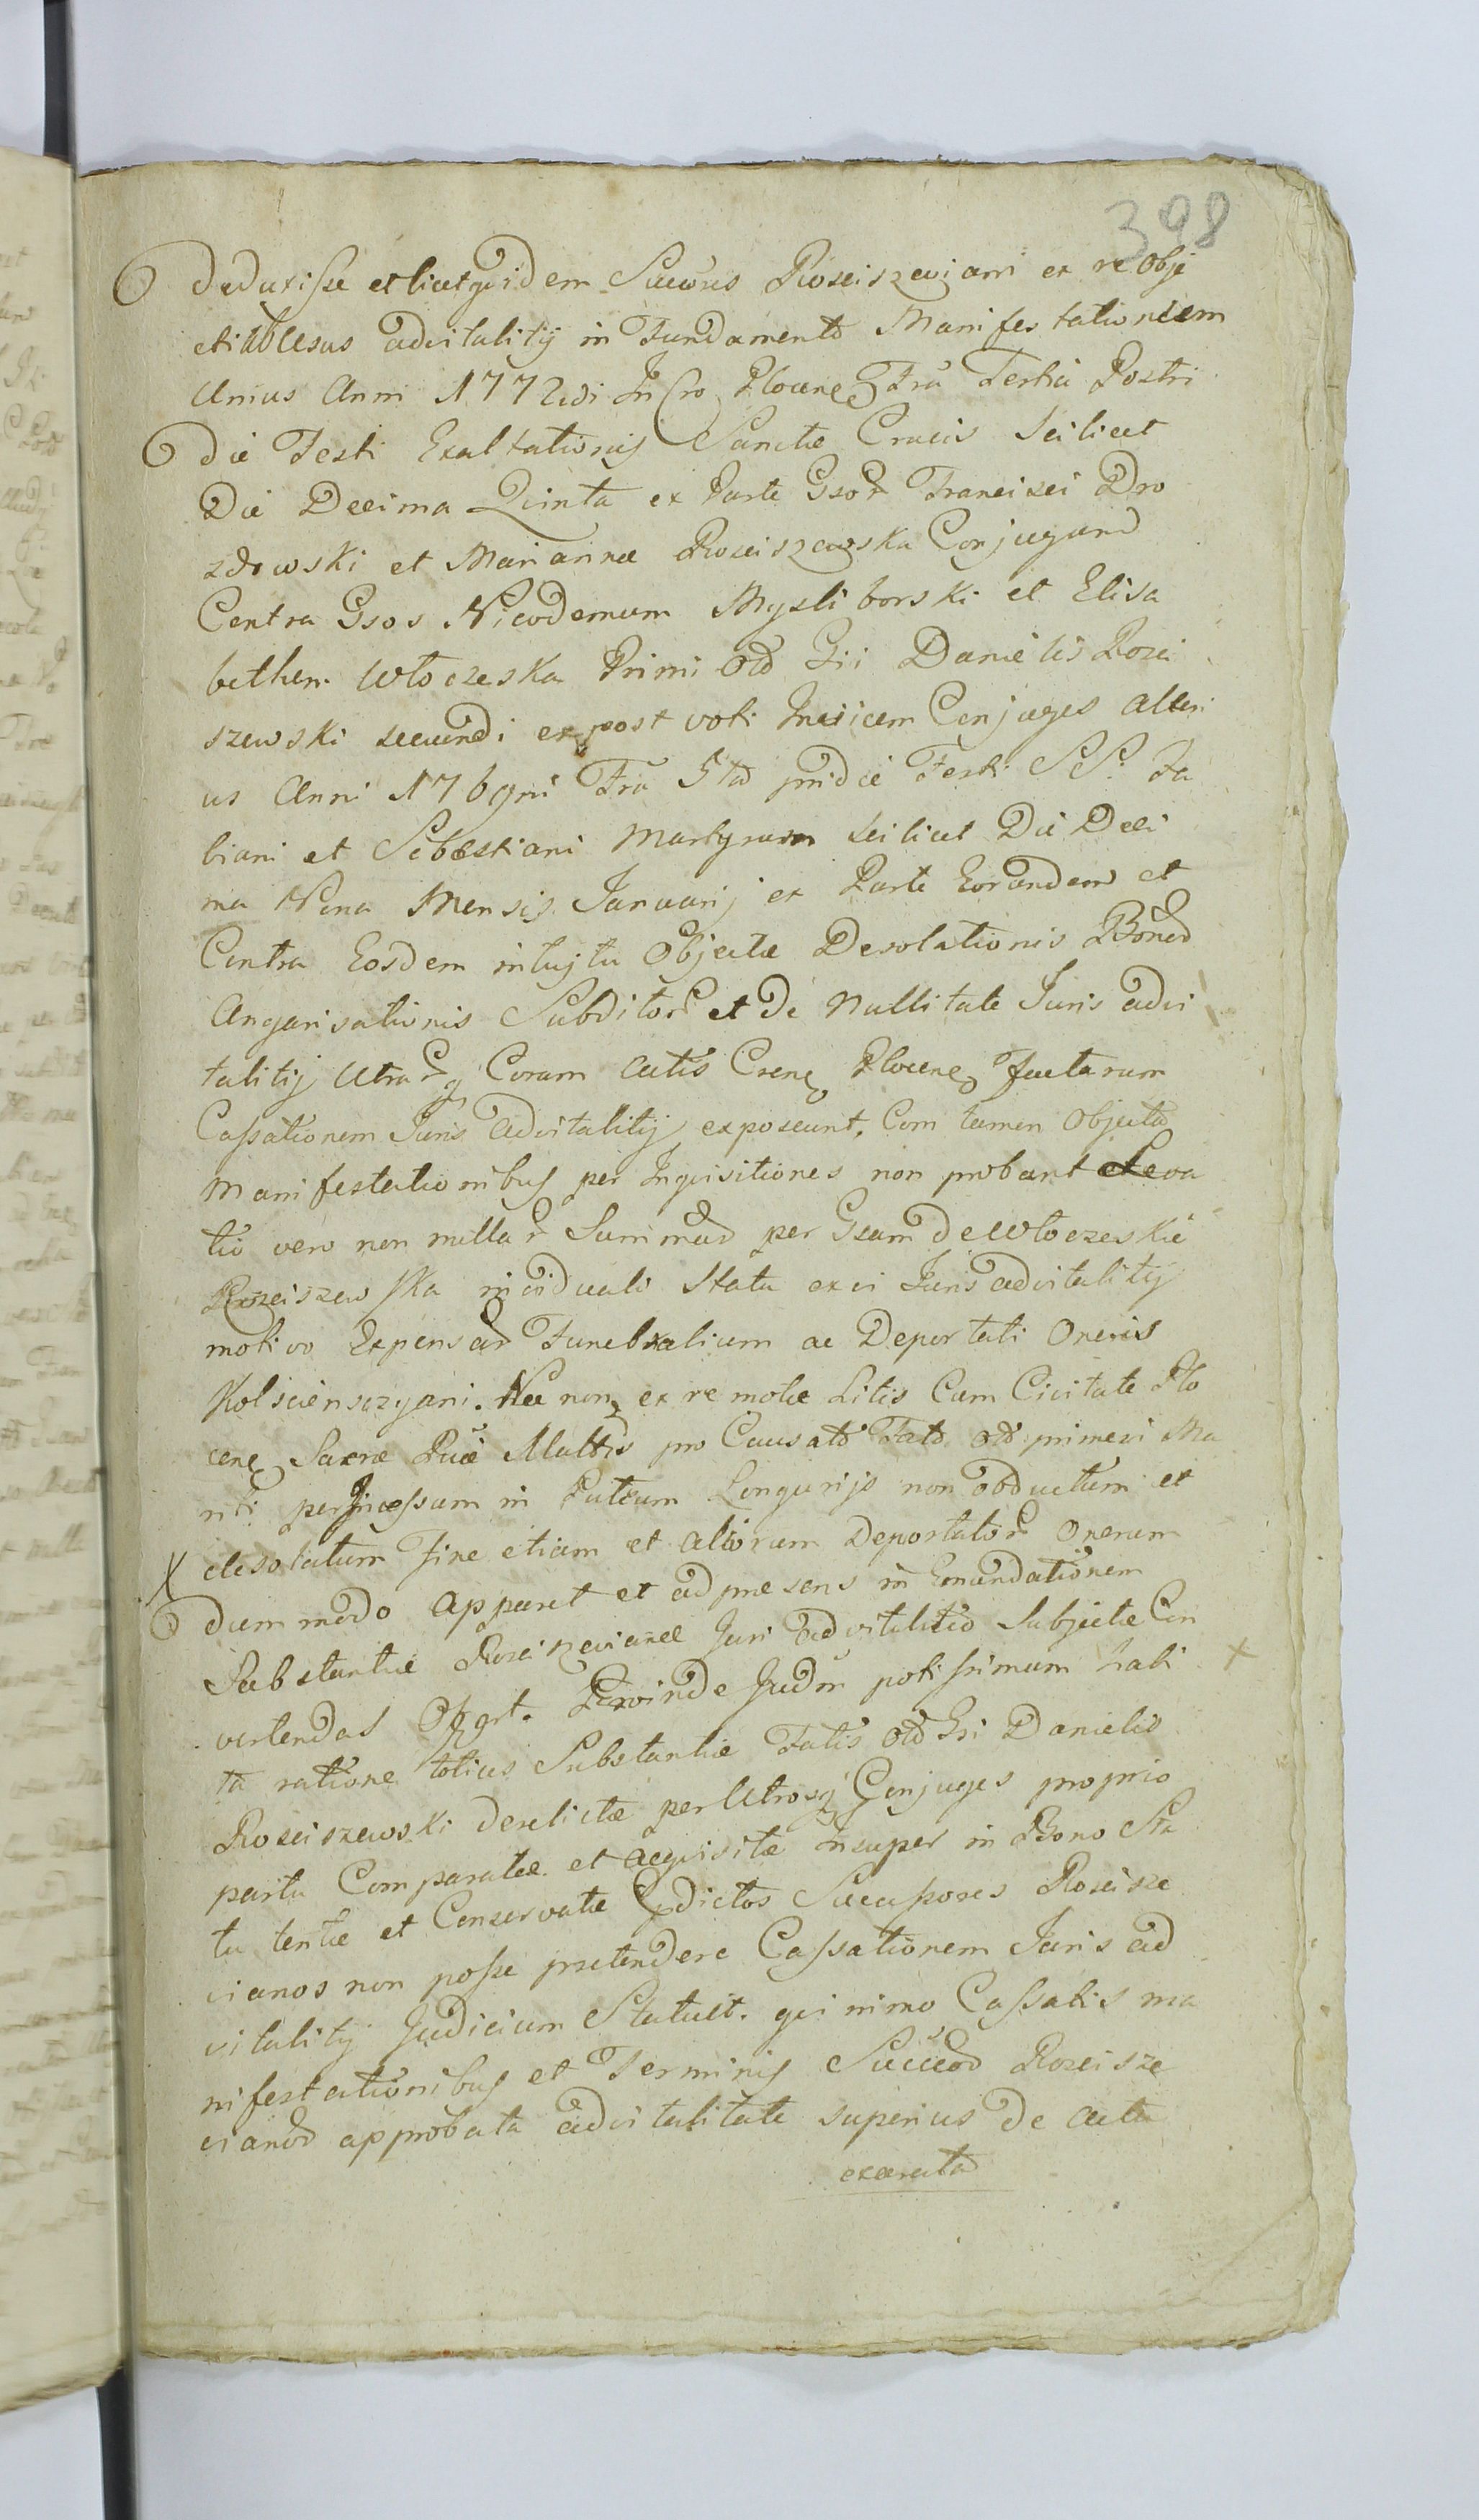 398
deduxisse et licet quidem Succres Rosciszeviani ex re obje
cti ablesus advitalitij in Fundamento Manifestationum
Unius Anni 1772di In Cro Plocen Fria Tertia Postri
die Festi Exaltationis Sanctæ Crucis Scilicet
Die Decima Quinta ex Parte Gsor Francisci Dro
zdowski et Mariannæ Rosciszewska Conjugum
Contra Gsos Nicodemum Mysliborski et Elisa
betham Wloczeska Primi olo Gsi Danielis Rosci
szewski secundi ex post voti Invicem Conjuges alteri
us Anni 1769ni Fria 5ta pridie Festi S.S. Fa
biani et Sebastiani Martyrum scilicet Die Deci
ma Nona Mensis Januarij ex Parte Eorundem et
Contra Eosdem intuitu Objectæ Desolationis Bonor
Angarisationis Subditor et de Nullitate Juris advi
talitij Utrarq Coram Actis Cren Plocen Factarum
Cassationem Juris advitalitij exposcunt, Cum tamen Objecta
Manifestationibus per Inquisitiones non probant Leva
tio vero non nullar Summar per Gsam de Wloczeskie
Rosciszewska in viduali Statu ex vi Juris advitalitij
motivo Expensar Funebralium ac Deportati Oneris
Kolscienscyani. Nec non ex re motæ Litis Cum Civitate Plo
cen Sacræ Rnæ Mattis pro Causato Fato olo primevi Ma
riti per Incessum in Puteum Longurijs non obductum et
desolatum Fine etiam et aliorum Deportator Onerum
dummodo apparet et ad præsens in Emendationem
Substantiæ Rosciszevianæ Juri advitalitio Subjectæ Con
vertendas Proinde Judm potissimum habi
ta ratione totius Substantiæ Fatis olo Gsi Danielis
Rosciszewski derelictæ per Utrosq Conjuges proprio
partu Comparatæ et acquisitæ Insuper in Bono Sta
tu tentæ et Conservatæ pdictos Successores Roscisze
vianos non posse prætendere Cassationem Juris ad
vitalitij Judicium Statuit. qui nimo Cassatis ma
nifestationibus et Terminis Succeor Roscisze
vianor approbata advitalitate superius de acta
exarata